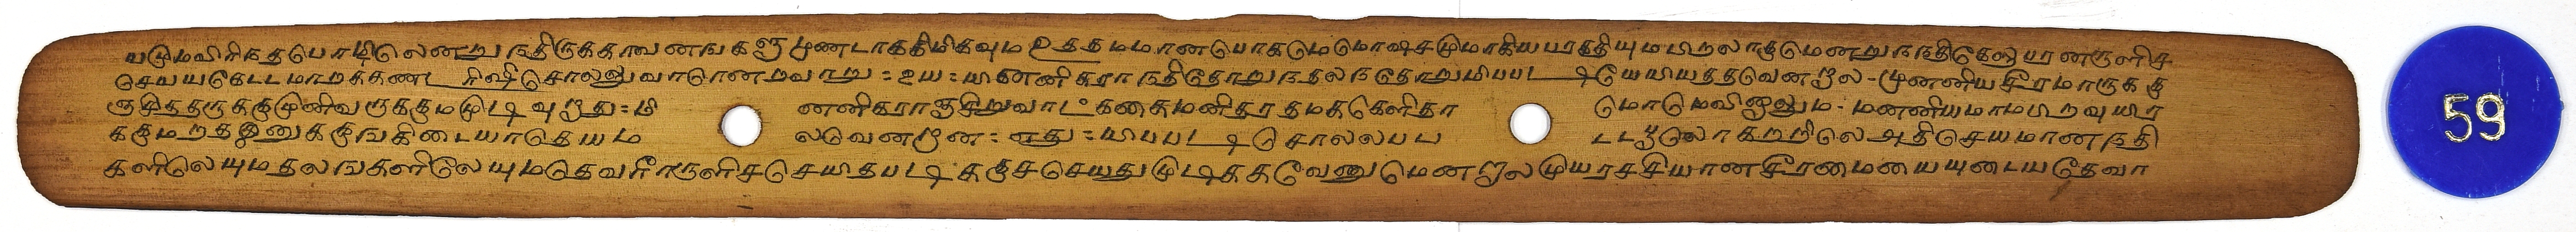 யடுமவிரிநத பொழிலெனறு நதிருககாவனஙகளுமுணடாககிமிகவும உததமமானபோகமுமமோஷமுமாகியபரகதியுமபிறலாகுமெனறு நநதிகேஸ்பரனருளிச
செயயகேடடமாறககணட ரிஷிசொலலுவாரொனறவாறு = உய = யினனிகரா நதிதோறு நதல நதோறுமிபபடியேயியததவேனறல - முனனியசீரமாருகக
ஞசிததருககுமுனிவருககுமமுடிவுறது = மி னனிகராஞசிறுவாடகதைமனிதரதமககெளிதா மொமெவினுலும - மணணியமாமபிறவுயிர
ககுமறதஇனுககுஙகிடையாதெயம லவெனறன = எது = யிபபடி சொலலபப டடபூலொகததிலெ அதிசெயமானநதி
களிலெயுமதலஙகளிலேயுமதெவரீருளிசசெயதபடிககுசசெயதுமுடிககவேணுமெனறலமுயரசசியானசீரமையையுடையதேவா
59